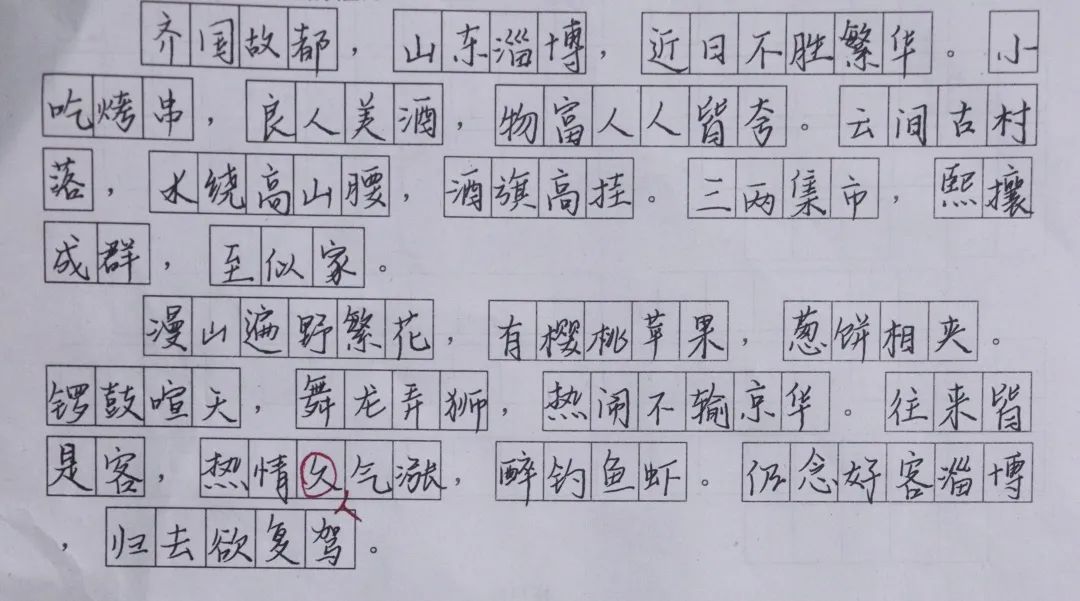 齐国故都，山东淄博，近日不胜繁华。小
吃烤串，良人美酒，物富人人皆夸。云间古村
落，水绕高山腰，酒旗高挂。三两集市，熙攘
成群，至似家。
漫山遍野繁花，有樱桃苹果，葱饼相夹。
锣鼓喧天，舞龙弄狮，热闹不输京华。往来皆
是客，热情欠气涨，醉钓鱼虾。仍念好客淄博
人
，归去欲复驾。